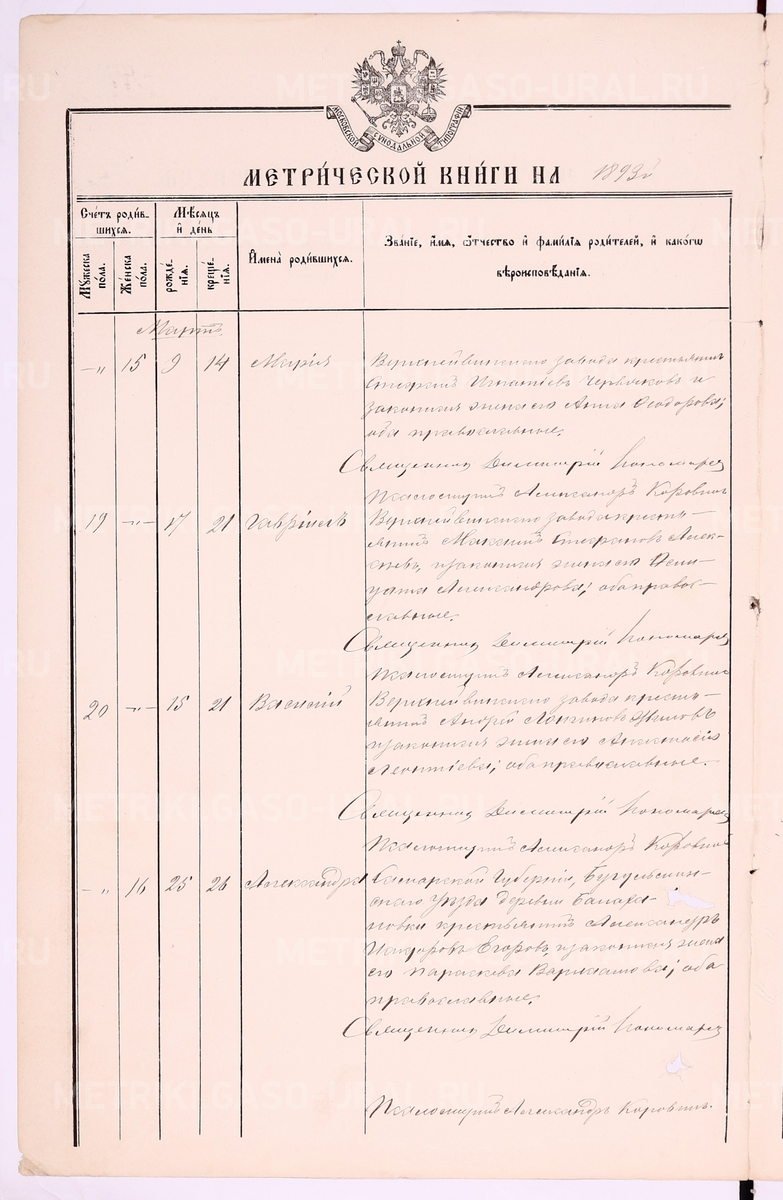 МОСКОВСКОЙ СѴНОДАЛЬНОЙ ТИПОГРАФІИ
МЕТРИ́ЧЕСКОЙ КНИ́ГИ НА 1893й
Сче́тъ роди́вшихся.
Мѣ́сяцъ и́ де́нь
И҆мена̀ роди́вшихся.
Зва́нїе, и҆́мѧ, ѻ҆́тчество и҆ фами́лїѧ роди́телей, и҆ како́гѡ вѣроисповѣ́данїѧ.
Мꙋ́жеска по́ла.
Же́нска по́ла.
рожде́нїѧ.
креще́нїѧ.
Мартъ
—„ 15 9 14 Марія Верхнейвинскаго завода крестьянинъ
Стефанъ Игнатіевъ Червяковъ и
законная жена его Анна Ѳеодорова;
оба православные.
Священникъ Димитрій Пономаревъ
Псаломщикъ Александръ Коровинъ
19 —„— 17 21 Гавріилъ Верхнейвинскаго завода кресть-
янинъ Максимъ Стефановъ Алек-
и законная жена его
Александрова; оба право-
славные.
Священникъ Димитрій Пономаревъ
Псаломщикъ Александръ Коровинъ
20 —„— 15 21 Василій Верхнейвинскаго завода кресть-
янинъ Андрей Логиновъ
и законная жена его Анастасія
Леонтіева; оба православные.
Священникъ Димитрій Пономаревъ
Псаломщикъ Александръ Коровинъ
—„ 16 25 26 Александра Самарской Губерніи, Бугульмин-
скаго уѣзда деревни
крестьянинъ Александръ
Егоровъ, и законная жена
его Параскева Варлаамова; оба
православные.
Священникъ Димитрій Пономаревъ
Псаломщикъ Александръ Коровинъ.
METRIKI.GASO-URAL.RU